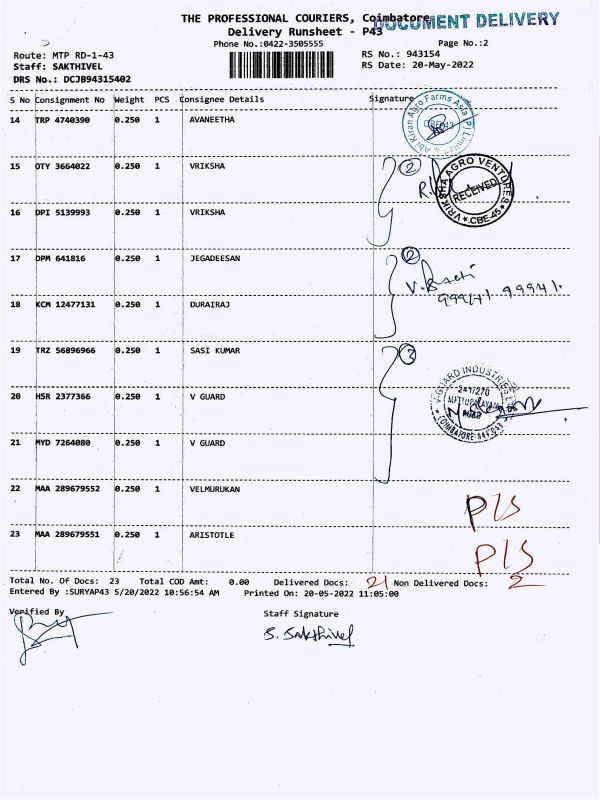 THE PROFESSIONAL COURIERS, Coimbatore
DOCUMENT DELIVERY
Delivery Runsheet - P43
Phone No.:0422-3505555
Page No.:2
Route: MTP RD-1-43
RS No.: 943154
Staff: SAKTHIVEL
RS Date: 20-May-2022
DRS No.: DCJB94315402
S No Consignment No Weight PCS Consignee Details Signature
14 TRP 4740390 0.250 1 AVANEETHA
Abi Kiran Agro Farms Asia (P) Limited
15 OTY 3664022 0.250 1 VRIKSHA
2
VRIKSHA AGRO VENTURES
RECEIVED
* CBE-45 *
16 DPI 5139993 0.250 1 VRIKSHA
17 DPM 641816 0.250 1 JEGADEESAN
2
18 KCM 12477131 0.250 1 DURAIRAJ
19 TRZ 56896966 0.250 1 SASI KUMAR
3
V-GUARD INDUSTRIES
COIMBATORE
20 HSR 2377366 0.250 1 V GUARD
21 MYD 7264080 0.250 1 V GUARD
22 MAA 289679552 0.250 1 VELMURUKAN
P/S
23 MAA 289679551 0.250 1 ARISTOTLE
P/S
Total No. Of Docs: 23 Total COD Amt: 0.00 Delivered Docs: 21 Non Delivered Docs: 2
Entered By :SURYAP43 5/20/2022 10:56:54 AM Printed On: 20-05-2022 11:05:00
Verified By
Staff Signature
S. Sakthivel